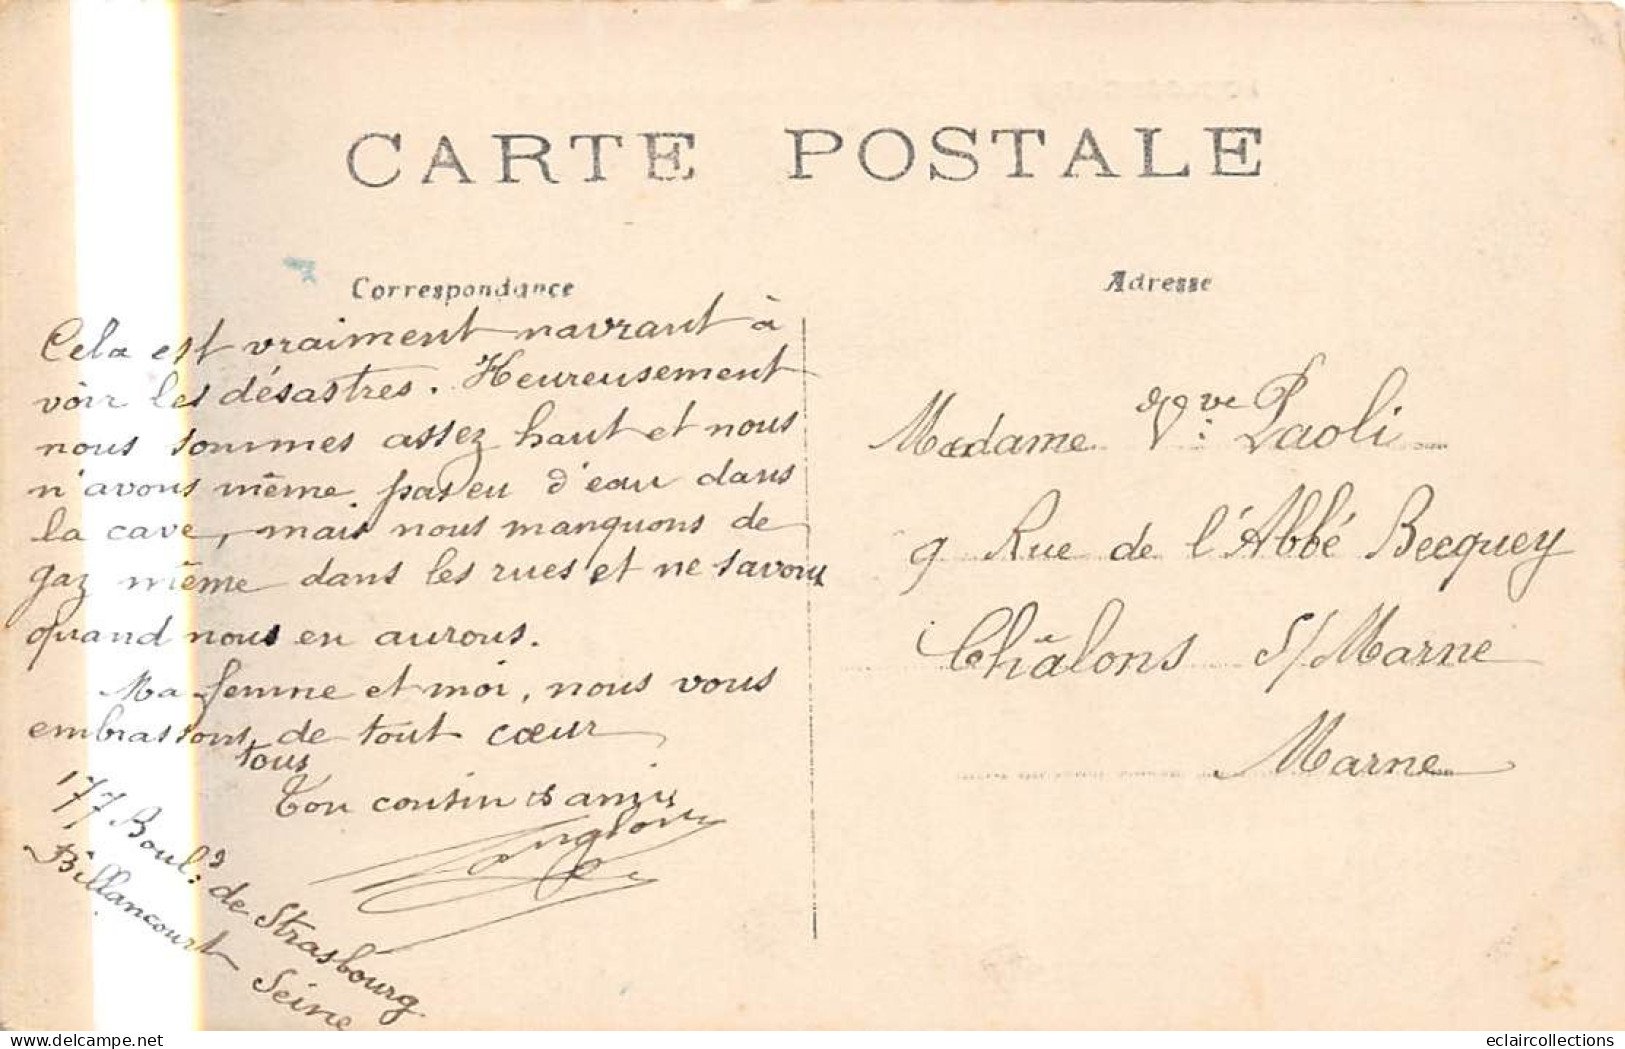 CARTE POSTALE
Correspondance
Cela est vraiment navrant à
voir les désastres. Heureusement
nous sommes assez haut et nous
n'avons même pas eu d'eau dans
la cave, mais nous manquons de
gaz même dans les rues et ne savons
quand nous en aurons.
Ma femme et moi, nous vous
embrassons de tout cœur
tous
Ton cousin & ami
177 Boul.d de Strasbourg
Billancourt Seine
Adresse
Madame Vve Paoli
9 Rue de l'Abbé Becquey
Châlons s/Marne
Marne
eclaircollections